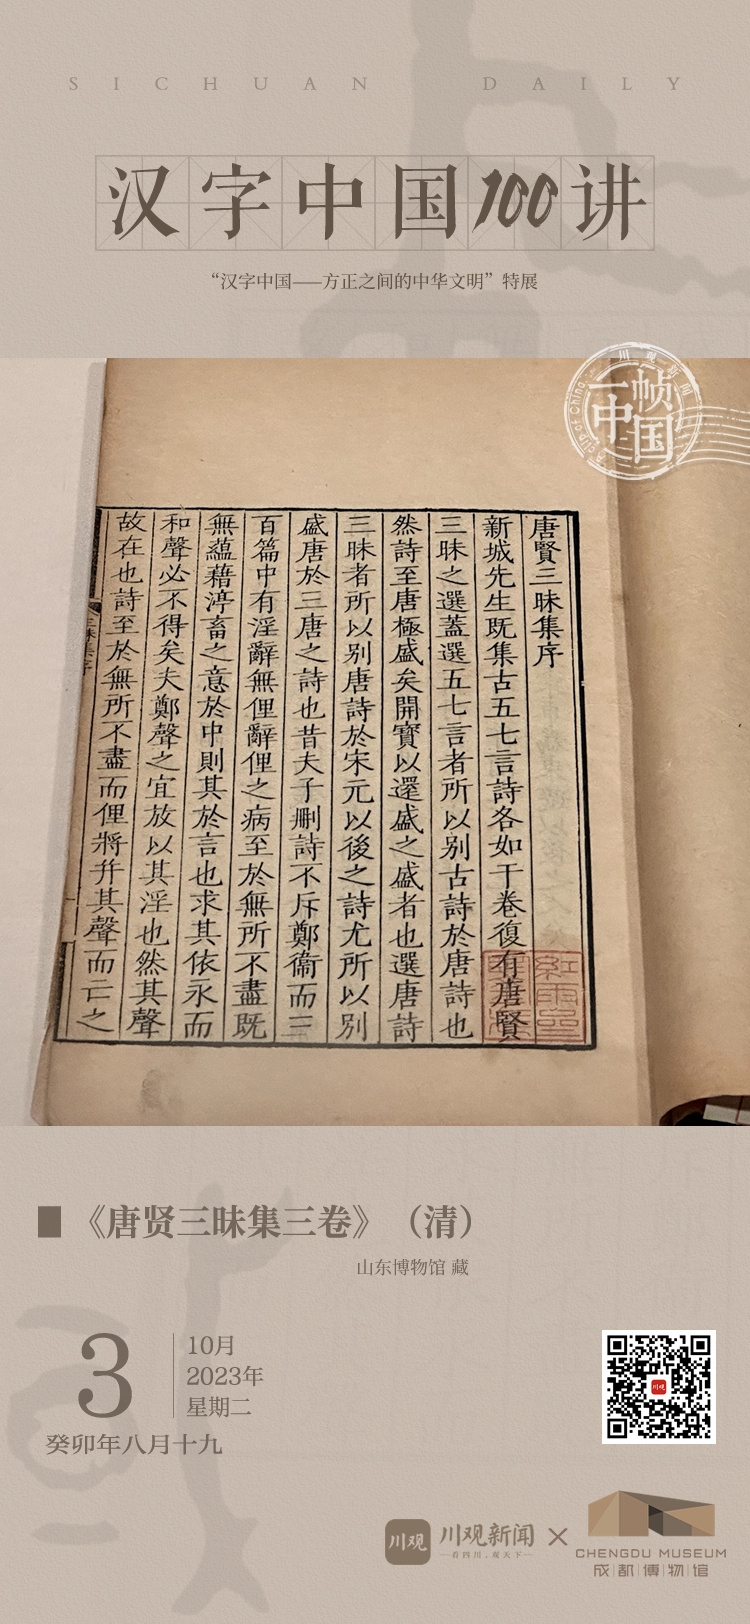 SICHUAN DAILY
汉字中国100讲
“汉字中国——方正之间的中华文明”特展
川观新闻
一帧
中国
A clip of China
唐賢三昧集序
新城先生既集古五七言詩各如干卷復有唐賢
三昧之選蓋選五七言者所以别古詩於唐詩也
然詩至唐極盛矣開寳以還盛之盛者也選唐詩
三昧者所以别唐詩於宋元以後之詩尤所以别
盛唐於三唐之詩也昔夫子刪詩不斥鄭衞而三
百篇中有淫辭無俚辭俚之病至於無所不盡既
無蘊藉渟畜之意於中則其於言也求其依永而
和聲必不得矣夫鄭聲之宜放以其淫也然其聲
故在也詩至於無所不盡而俚將幷其聲而亡之
《唐贤三昧集三卷》（清）
山东博物馆 藏
3
10月
2023年
星期二
癸卯年八月十九
川观
川观
川观新闻
—看四川，观天下—
×
CHENGDU MUSEUM
成都博物馆